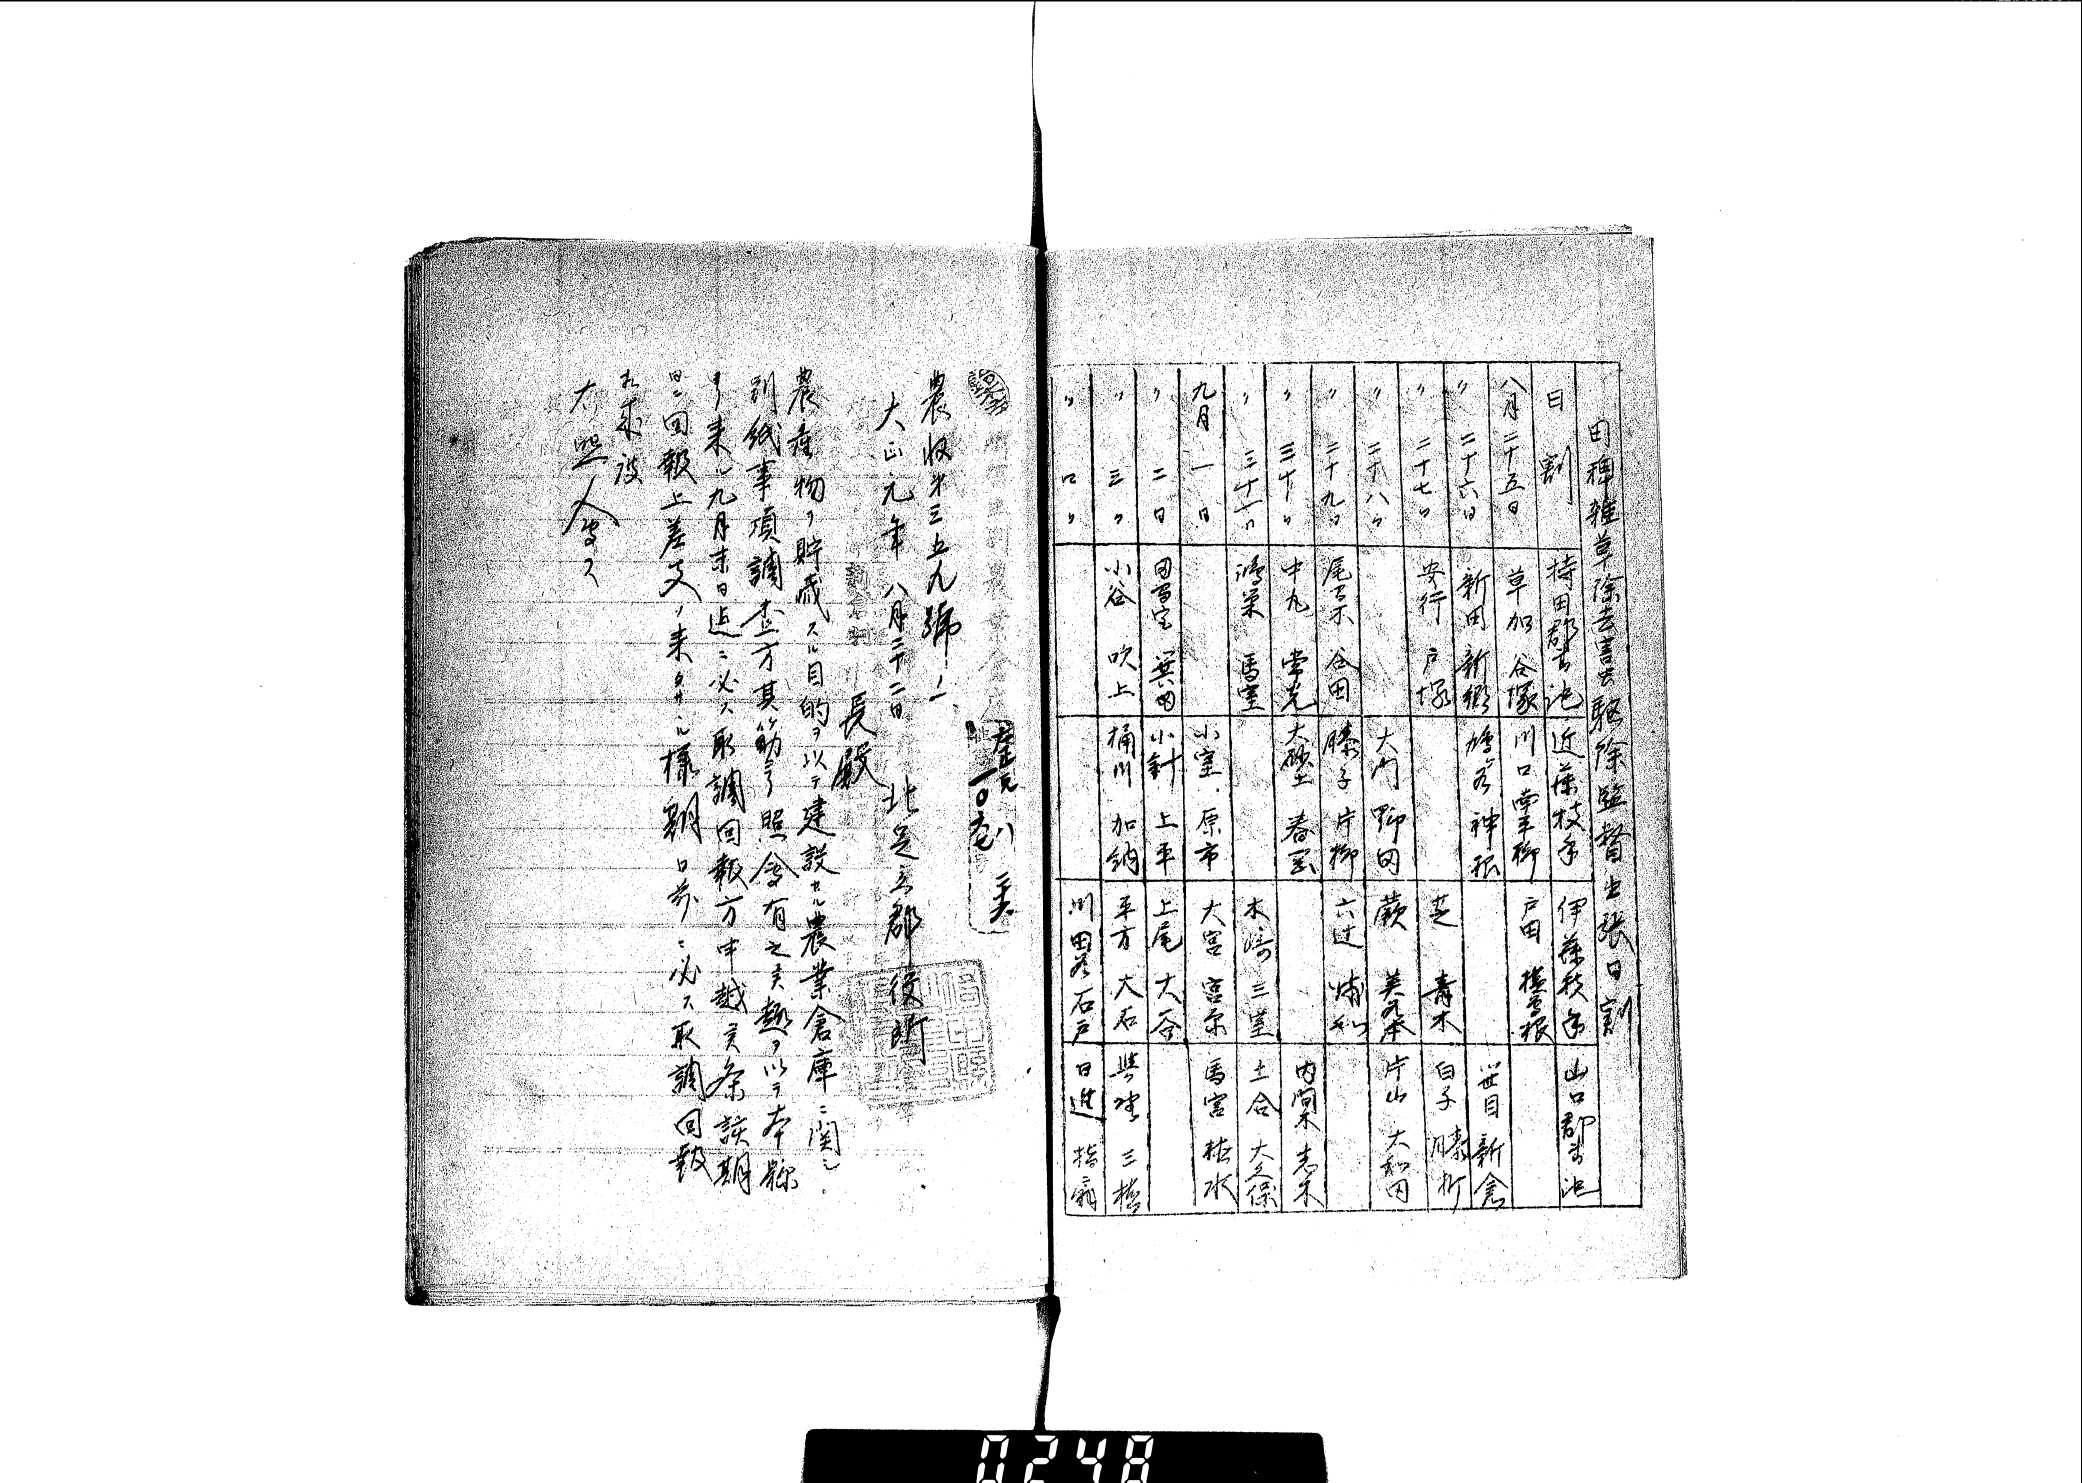 田稗雑草除去害虫駆除監督出張日割
日割 持田郡書記 近藤技手 伊藤技手 山口郡書記
八月二十五日 草加 谷塚 川口 南平柳 戸田 横曽根
〃 二十六日 新田 新郷 鳩ヶ谷 神根 新倉
〃 二十七〃 安行 戸塚 芝 青木 白子 膝折
〃 二十八〃 大門 野田 蕨 美谷本 片山 大和田
〃 二十九日 尾間木 谷田 膝子 片柳 六辻 浦和
〃 三十〃 中丸 常光 大砂土 春岡 内間木 志木
〃 三十一〃 鴻巣 馬室 木崎 三室 土合 大久保
九月 一日 小室 原市 大宮 宮原 馬宮 植水
〃 二日 田間宮 箕田 小針 上平 上尾 大谷
〃 三〃 小谷 吹上 桶川 加納 平方 大石 與野 三橋
〃 〃 川田谷 石戸 日進 指扇
農収第三五九號ノ一
大正元年八月二十二日 北足立郡役所
長殿
農産物ヲ貯蔵スル目的ヲ以テ建設セル農業倉庫ニ関シ
別紙事項調査方其筋ヨリ照會有之候趣ヲ以テ本縣
ヨリ来ル九月末日迄ニ必ス取調回報方申越候条該期
日ニ回報上差支ノ来タサヾル様期日前ニ必ス取調回報
相成度
右照會ス
0248